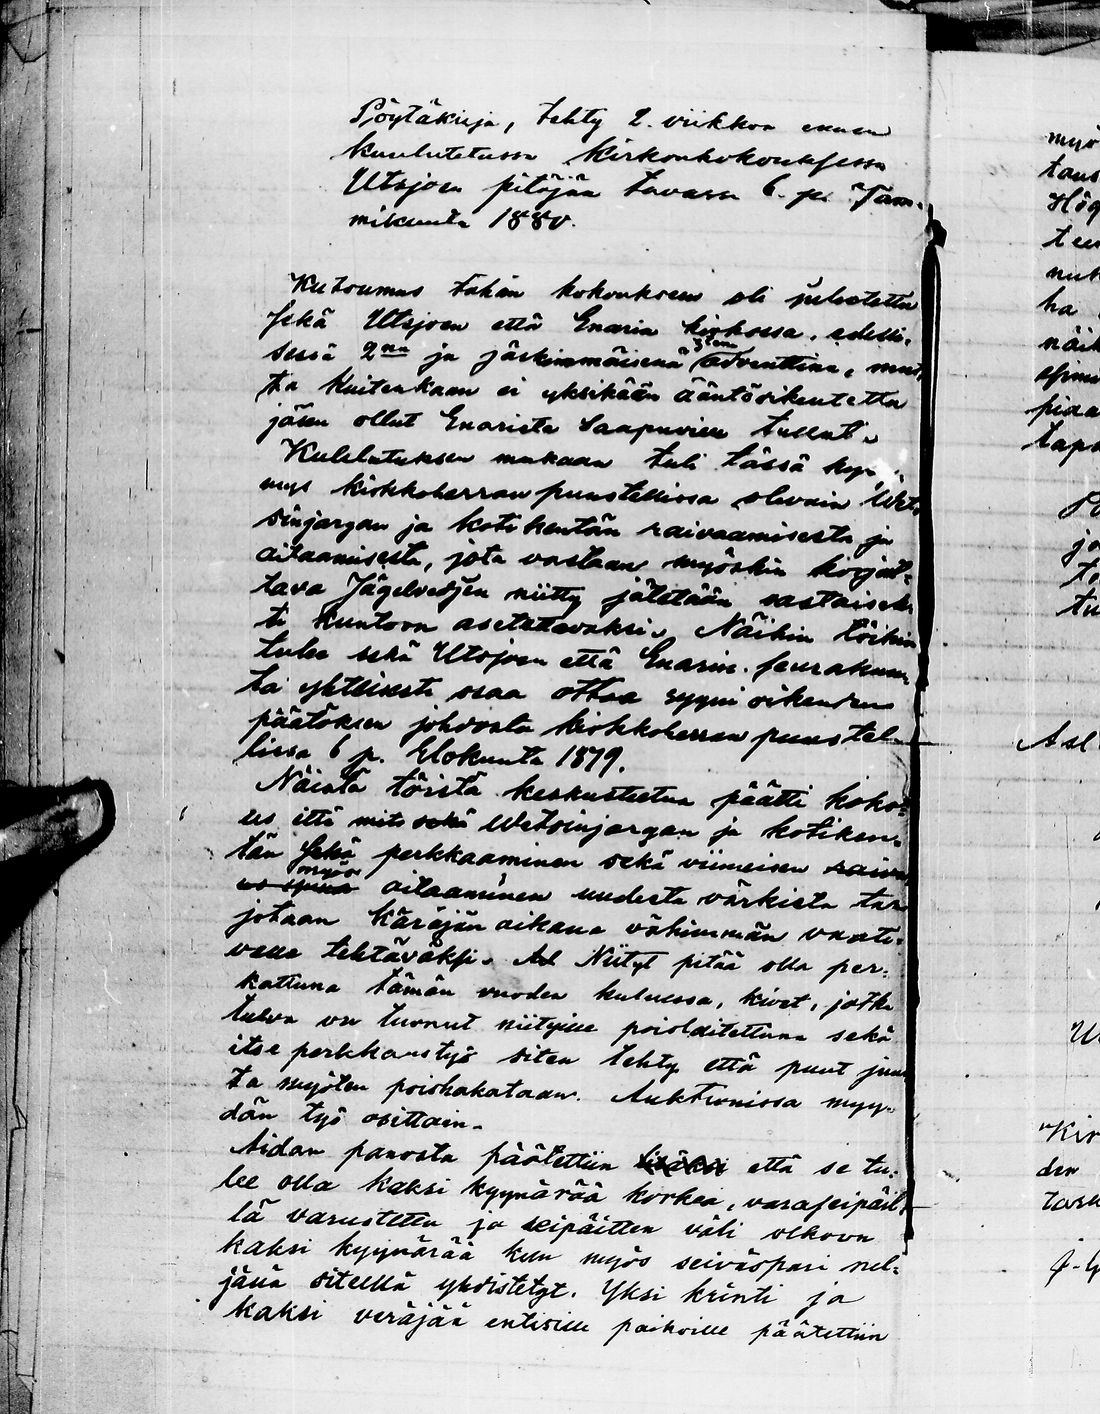 Pöytäkirja, tehty 2. viikkoa ennen
kuulutetussa kirkonkokouksessa
Utsjoen pitäjän tuvassa 6. p. Tam-
mikuuta 1880.
Kutsumus tähän kokoukseen oli julistettu
sekä Utsjoen että Enarin kirkossa, edelli-
sessä 2na ja jäskimmäisenä 3tena adventtina, mut-
ta kuitenkaan ei yksikään ääntöoikeutettu
jäsen ollut Enarista saapuvien tullut.
Kuulutuksen mukaan tuli tässä
mys kirkkoherran puustellissa olevain Wets
sinjargan ja kotikentän raivaamisesta ja
aitaamisesta, jota vastaan myöskin korjat-
tava Jägelvedjen niitty jätetään vastaiseks
ti kuntoon asetettavaksi. Näihin töihin
tulee sekä Utsjoen että Enarin seurakun-
ta yhteisesti osaa ottaa syyni oikeuden
päätöksen johdosta kirkkoherran puustel-
lissa 6 p. Elokuuta 1879.
Näistä töistä keskusteltua päätti koko-
us että mits sekä Wetsinjargan ja kotiken-
tän sekä perkkaaminen sekä viimeisen raivau
myös aitaaminen uudesta värkistä tar
jotaan Käräjän aikana vähimmän vaati-
valle tehtäväksi. Ad Niityt pitää olla per-
kattuna tämän vuoden kuluessa, kivet, jotka
tulva on tuonut niityille poislaitettuna sekä
itse perkkaustyö siten tehty että puut juur
ta myöten poishakataan. Auktionissa myy-
dän työ osittain.
Aidan panosta päätettiin lisäksi että se tu-
lee olla kaksi kyynärää korkea, varaseipäil
lä varustettu ja seipäitten väli olkoon
kaksi kyynärää kun myös seiväspari nel-
jänä siteellä yhdistetyt. Yksi krinti ja
kaksi veräjää entisille paikoille päätettiin